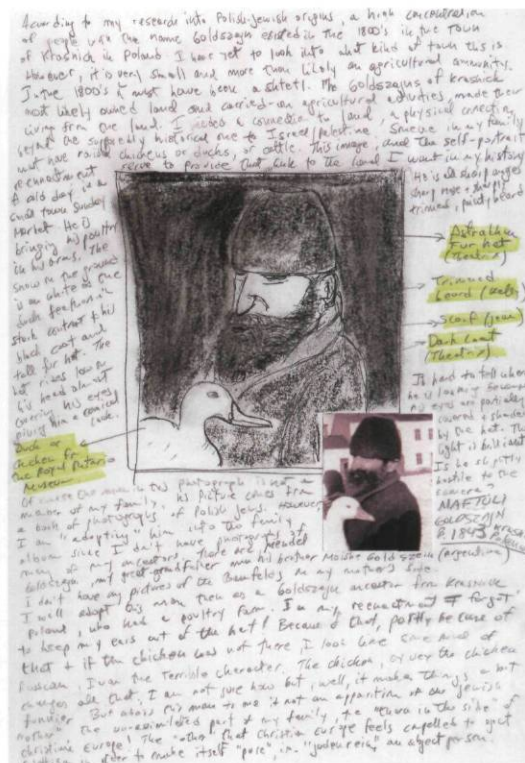 According to my research into Polish-Jewish origins, a high concentration
of people with the name Goldszajn existed in the 1800's in the town
of Krasnick in Poland I have yet to look into what kind of town this is
However, it is very small and more than likely an agricultural community.
In the 1800's it must have been a shtetl. The Goldszajns of Krasnick
most likely owned land and carried-on agricultural activities, made their
living from the land. I needed a connection to land, a physical connection
beyond the supposedly historical one to Israel/Palestine. Someone in my family
must have raised chickens or ducks, or cattle. This image, and the self-portrait
reenactment serve to provide that link to the land I want in my history
A cold day in a
small town Sunday
Market. He is
bringing his poultry
in his arms. The
snow on the ground
is as white as the
duck feathers in
stark contrast to his
black coat and
tall fur hat. The
hat rises low on
his head almost
covering his eyes
giving him a comical
look.
Duck or
chicken fr
the Royal Ontario
Museum
He is all sharp angles
sharp nose + sharply
trimmed, pointy beard
Astrakhan
Fur hat
(Theatrix)
Trimmed
beard
Scarf
Dark Coat
(Theatrix)
Is hard to tell where
he is looking because
his eyes are partially
covered & shaded
by the hat. The
light is brilliant
Is he slightly
hostile to the
camera?
MAFTULI
GOLDSZAJN
B. 1843
Of course the man in this photograph is not a
member of my family, his picture comes from
a book of photographs of Polish Jews. However,
I am "adopting" him into the family
album since I don't have photographs of
many of my ancestors. There are
Goldszajn, my great grandfather and his brother Moishe Goldszein (Argentina)
I don't have any pictures of the on my mother's side.
I will adopt this man then as a Goldszajn ancestor from Krasnick
Poland, who had a poultry farm. In my reenactment I forgot
to keep my ears out of the hat! Because of that, partly because of
that + if the chicken was not there, I look like some kind of
Russian, Ivan the Terrible character. The chicken, oy vey the chicken
changes all that, I am not sure how but, well, it makes things a bit
funnier. But also this man to me is it not an apparition of the Jewish
"other" the un-assimilated part of my family, the "thorn in the side" of
christian Europe! The "other" that Christian Europe feels compelled to
in order to make itself "pure", an abject person.